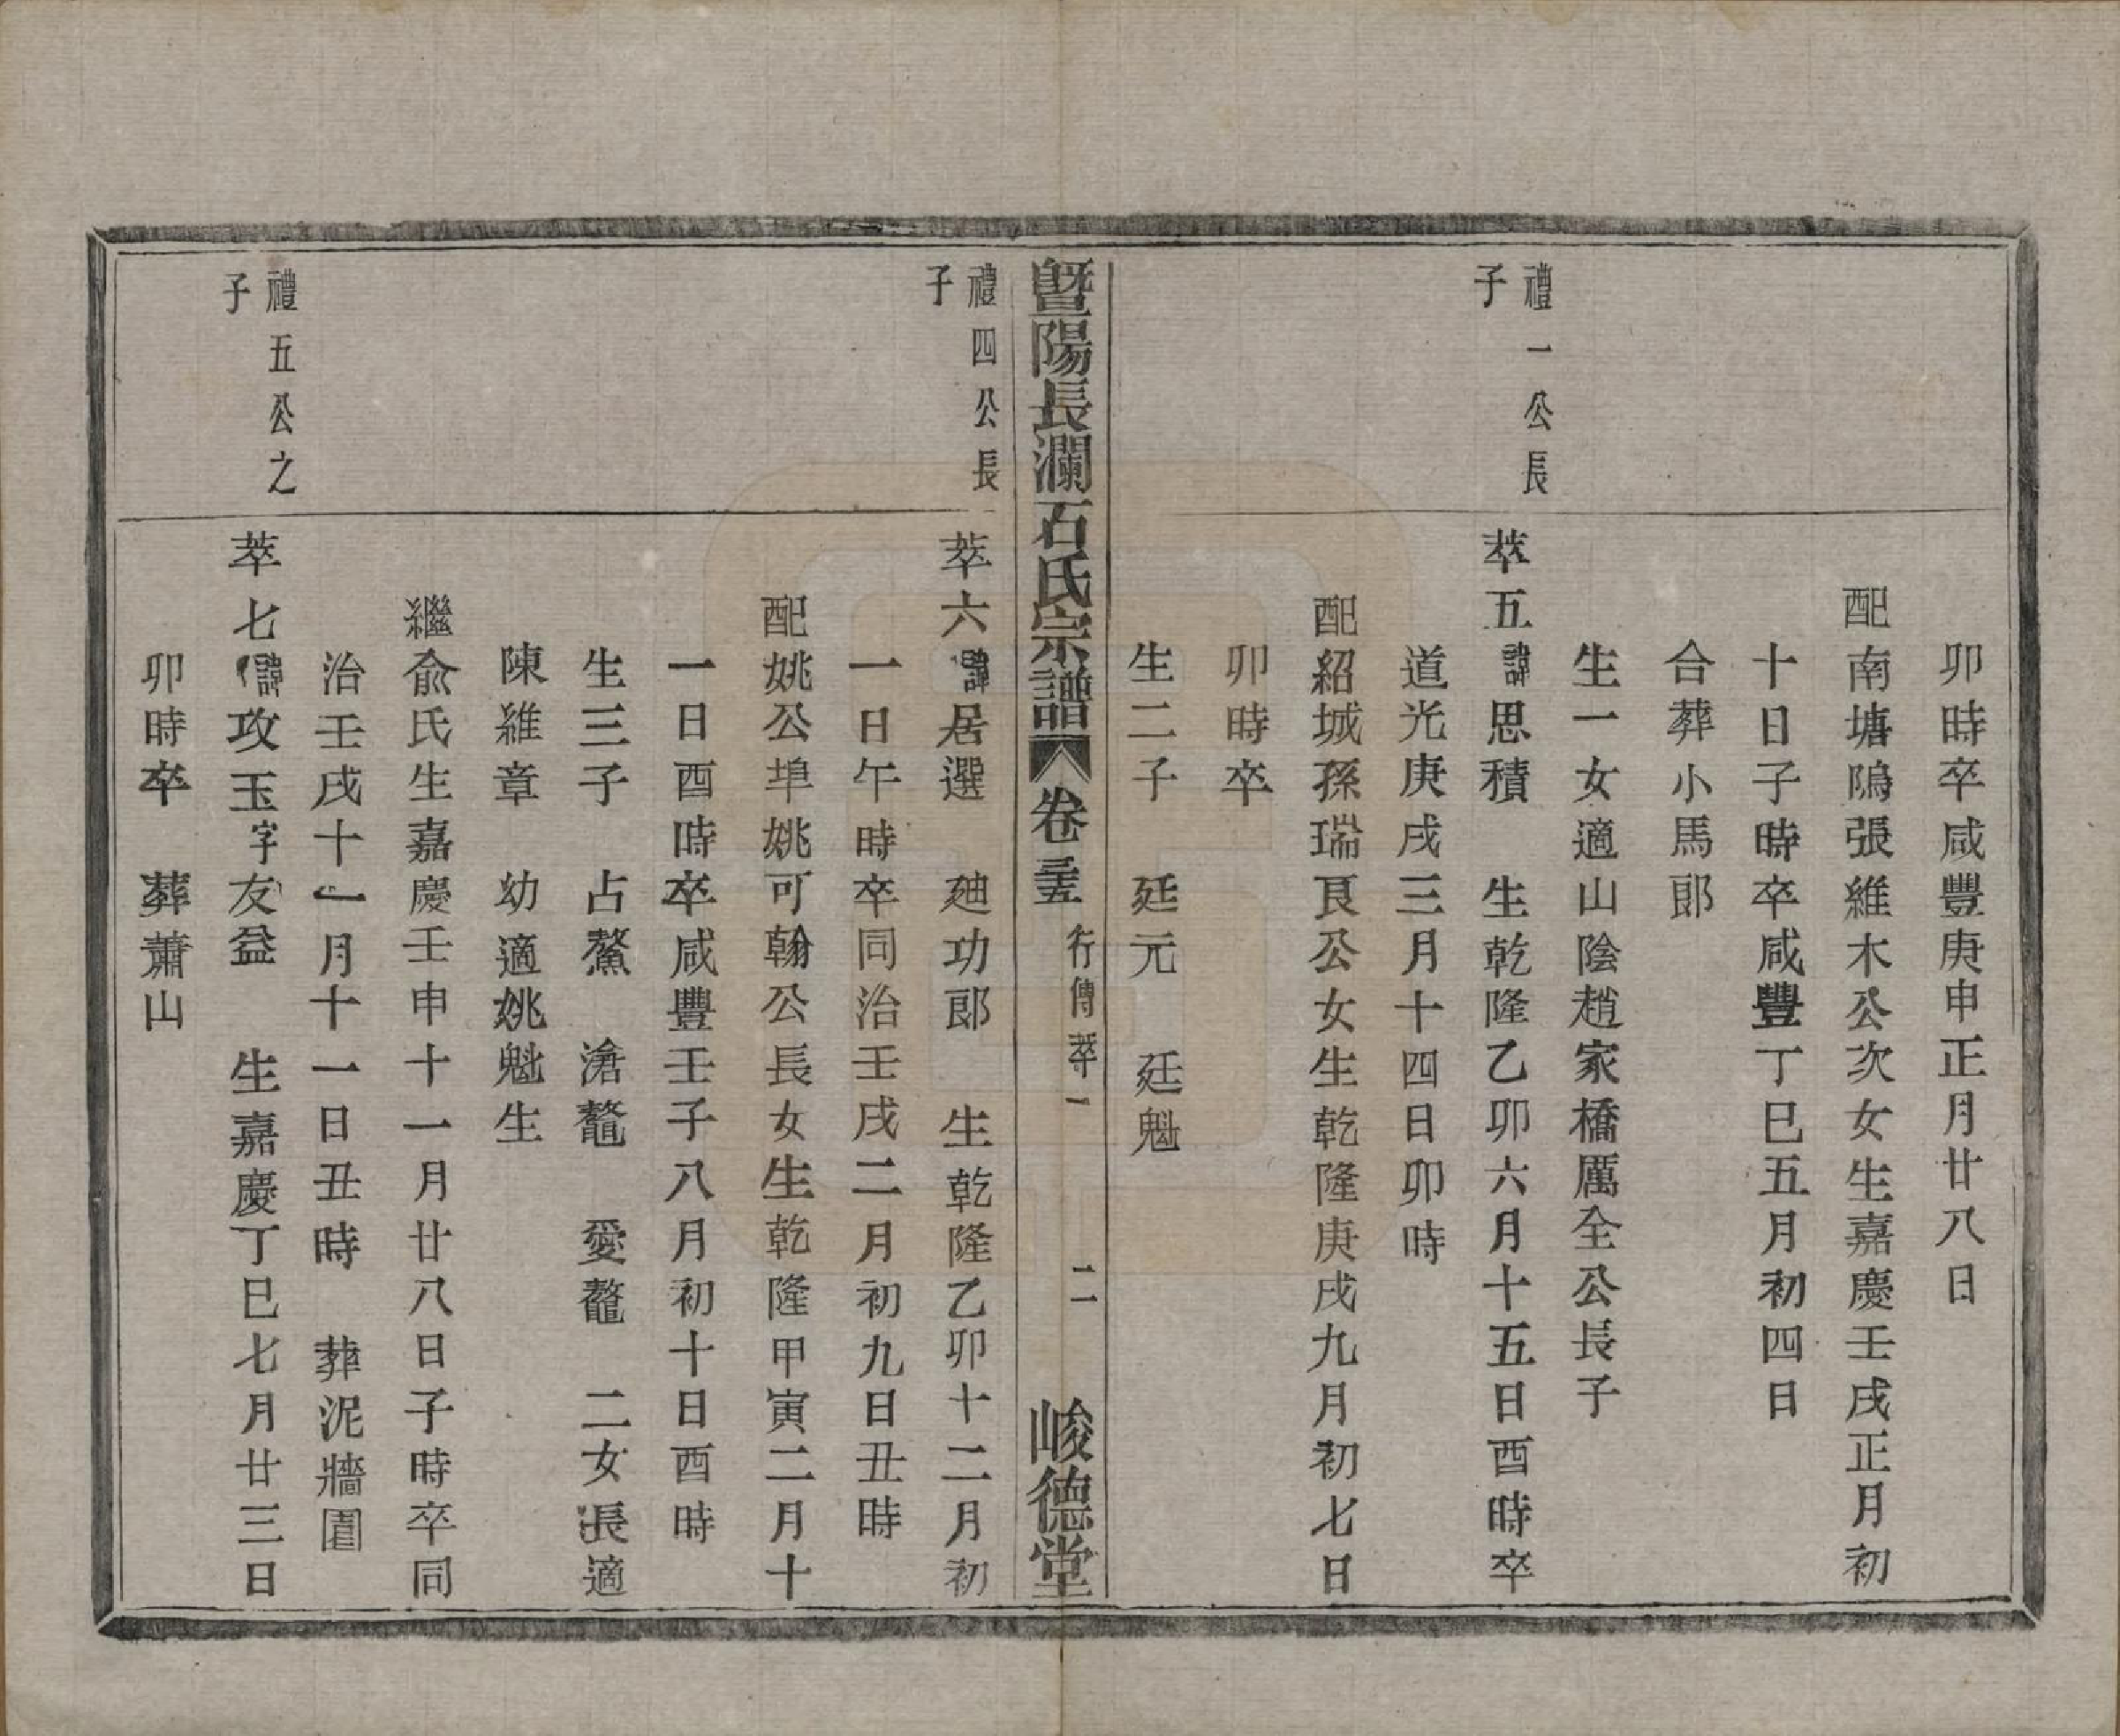 卯時卒咸豐庚申正月廿八日
配南塘隖張維木公次女生嘉慶壬戌正月初
十日子時卒咸豐丁巳五月初四日
合葬小馬郎
生一女適山陰趙家橋厲全公長子
禮一公長
子
萃五諱思積 生乾隆乙卯六月十五日酉時卒
道光庚戌三月十四日卯時
配紹城孫瑞艮公女生乾隆庚戌九月初七日
卯時卒
生二子 廷元 廷魁
暨陽長瀾石氏宗譜 卷三五 行傳萃一 二 峻德堂
禮四公長
子
萃六諱居選 廸功郎 生乾隆乙卯十二月初
一日午時卒同治壬戌二月初九日丑時
配姚公埠姚可翰公長女生乾隆甲寅二月十
一日酉時卒咸豐壬子八月初十日酉時
生三子 占鰲 滄鼇 愛鼇 二女長適
陳維章 幼適姚魁生
繼俞氏生嘉慶壬申十一月廿八日子時卒同
治壬戌十一月十一日丑時 葬泥牆園
禮五公之
子
萃七諱攻玉字友益 生嘉慶丁巳七月廿三日
卯時卒 葬蕭山